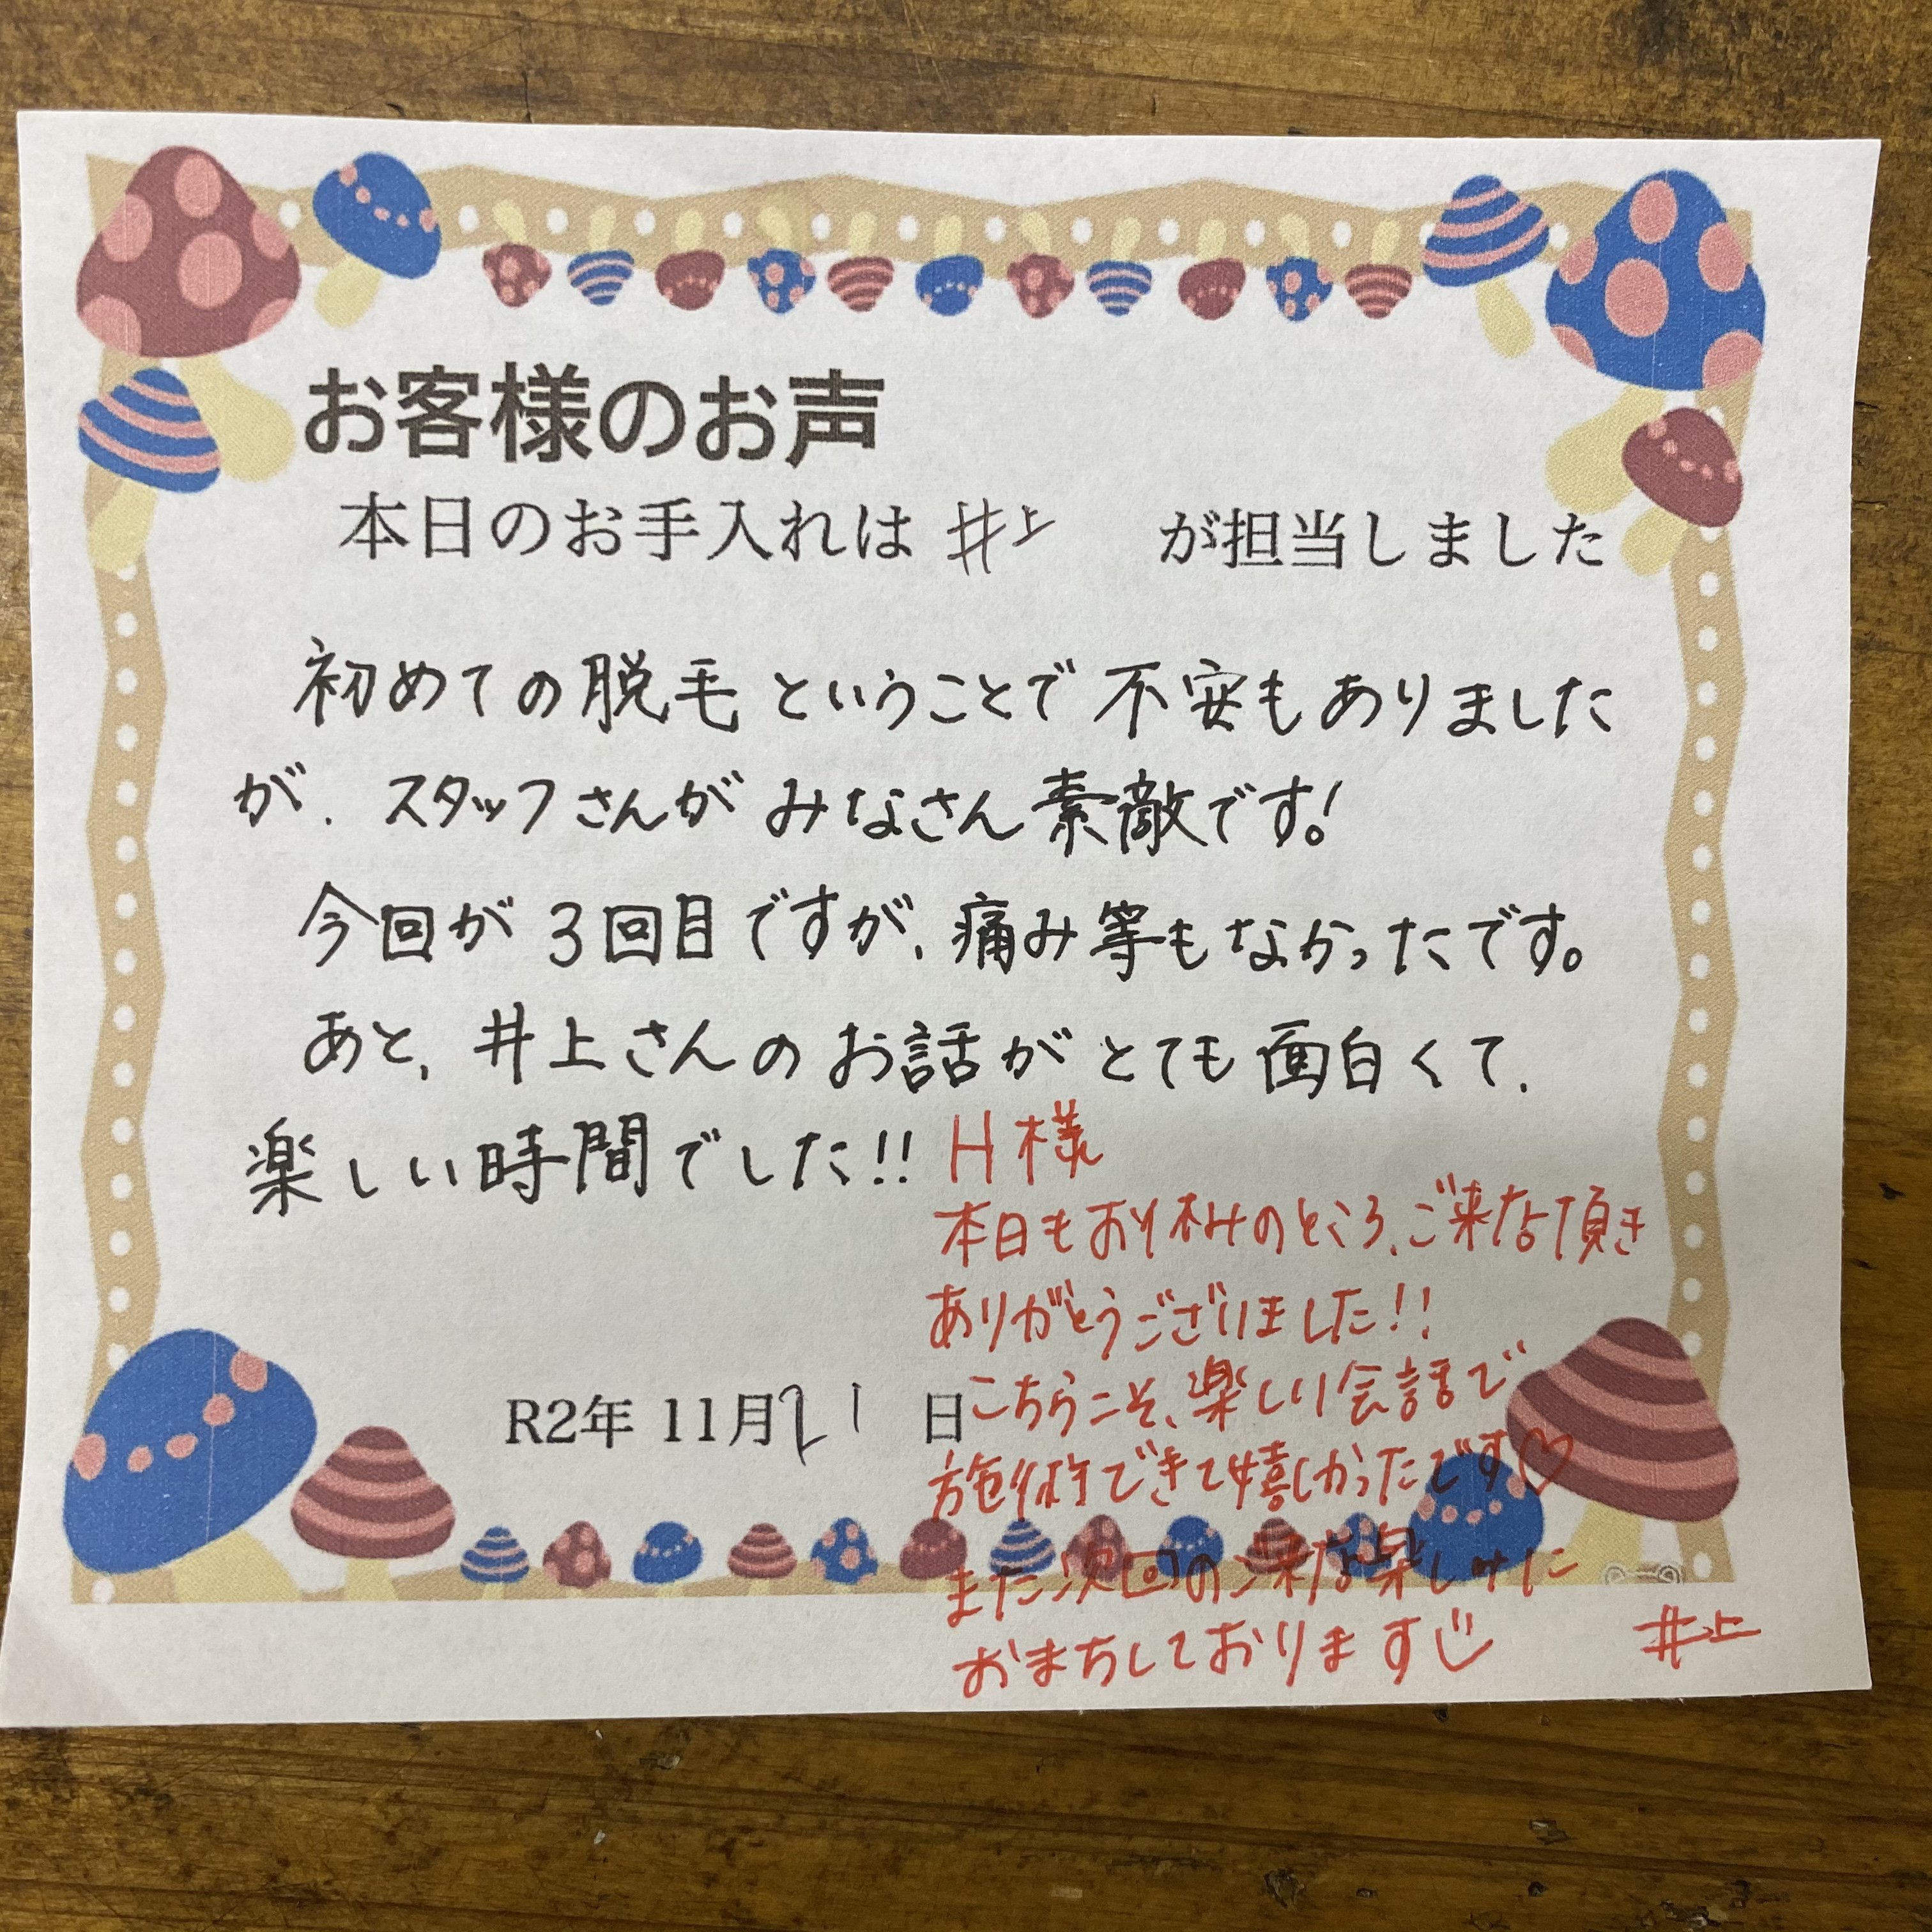 お客様のお声
本日のお手入れは 井上 が担当しました
初めての脱毛ということで不安もありました
が、スタッフさんがみなさん素敵です!
今回が3回目ですが、痛み等もなかったです。
あと、井上さんのお話がとても面白くて、
楽しい時間でした!!
H様
本日もお休みのところ、ご来店頂き
ありがとうございました!!
こちらこそ、楽しい会話で
施術できて嬉しかったです♡
また次回のご来店楽しみに
おまちしております
井上
R2年 11月21日